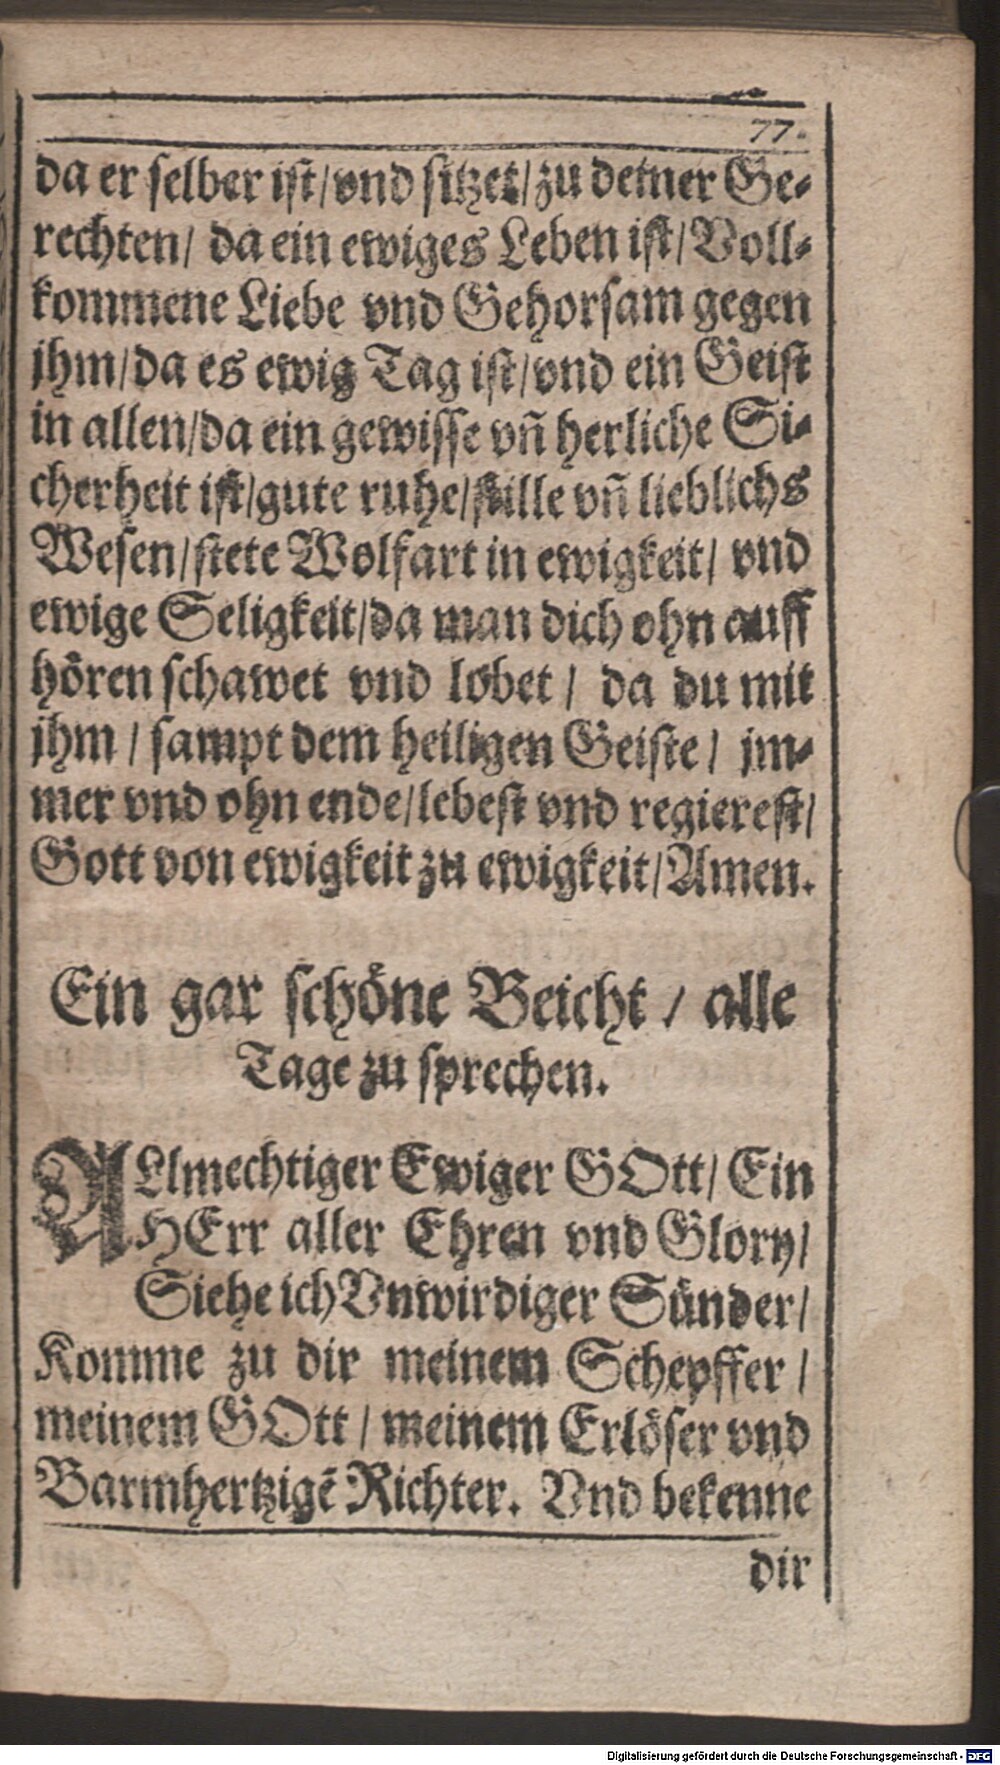 77.
da er selber ist/vnd sitzet/zu deiner Ge-
rechten/ da ein ewiges Leben ist/Voll-
kommene Liebe vnd Gehorsam gegen
jhm/da es ewig Tag ist/vnd ein Geist
in allen/da ein gewisse vñ herliche Si-
cherheit ist/gute ruhe/stille vñ lieblichs
Wesen/stete Wolfart in ewigkeit/ vnd
ewige Seligkeit/da man dich ohn auff
hören schawet vnd lobet / da du mit
jhm / sampt dem heiligen Geiste / jm-
mer vnd ohn ende/lebest vnd regierest/
Gott von ewigkeit zu ewigkeit/Amen.
Ein gar schöne Beicht / alle
Tage zu sprechen.
ALlmechtiger Ewiger GOtt/ Ein
HErr aller Ehren vnd Glory/
Siehe ich Vnwirdiger Sünder/
Komme zu dir meinem Schepffer /
meinem GOtt / meinem Erlöser vnd
Barmhertzigẽ Richter. Vnd bekenne
dir
Digitalisierung gefördert durch die Deutsche Forschungsgemeinschaft - DFG